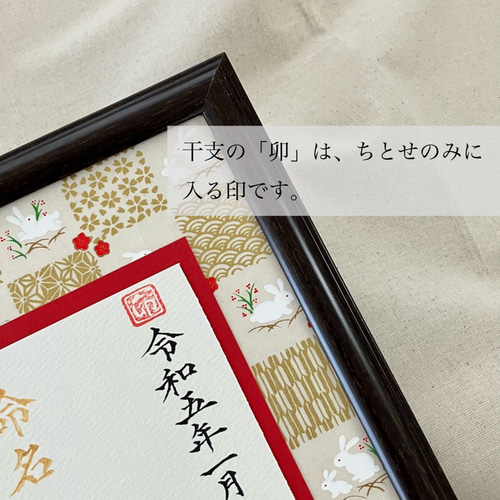 干支の「卯」は、ちとせのみに
入る印です。
卯
令和五年一月
命名